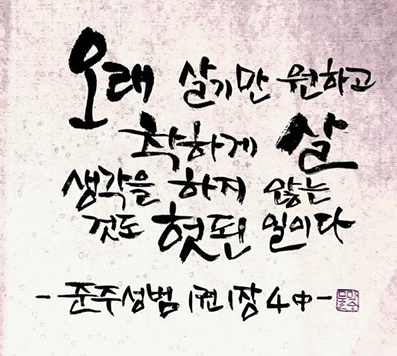 오래 살기만 원하고
착하게 살
생각을 하지 않는
것도 헛된 일이다
- 준주성범 1권 1장 4中 -